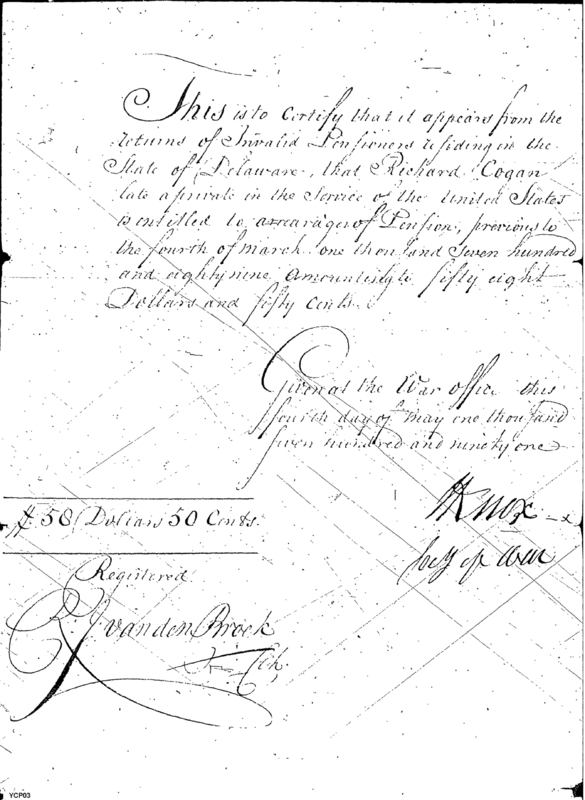 This is to Certify that it appears from the
returns of Invalid Pensioners residing in the
State of Delaware, that Richard Cogan
late a private in the Service of the United States
is entitled to arrearages of Pension, previous to
the fourth of march one thousand Seven hundred
and eighty nine Amounting to fifty eight
Dollars and fifty Cents.
Given at the War office this
fourth day of may one thousand
seven hundred and ninety one
HKnox
Secy of War
58 Dollars 50 Cents.
Registered
vanden Broek
YCP03